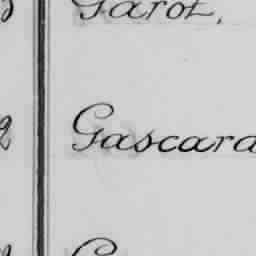 Garot,
Gascara